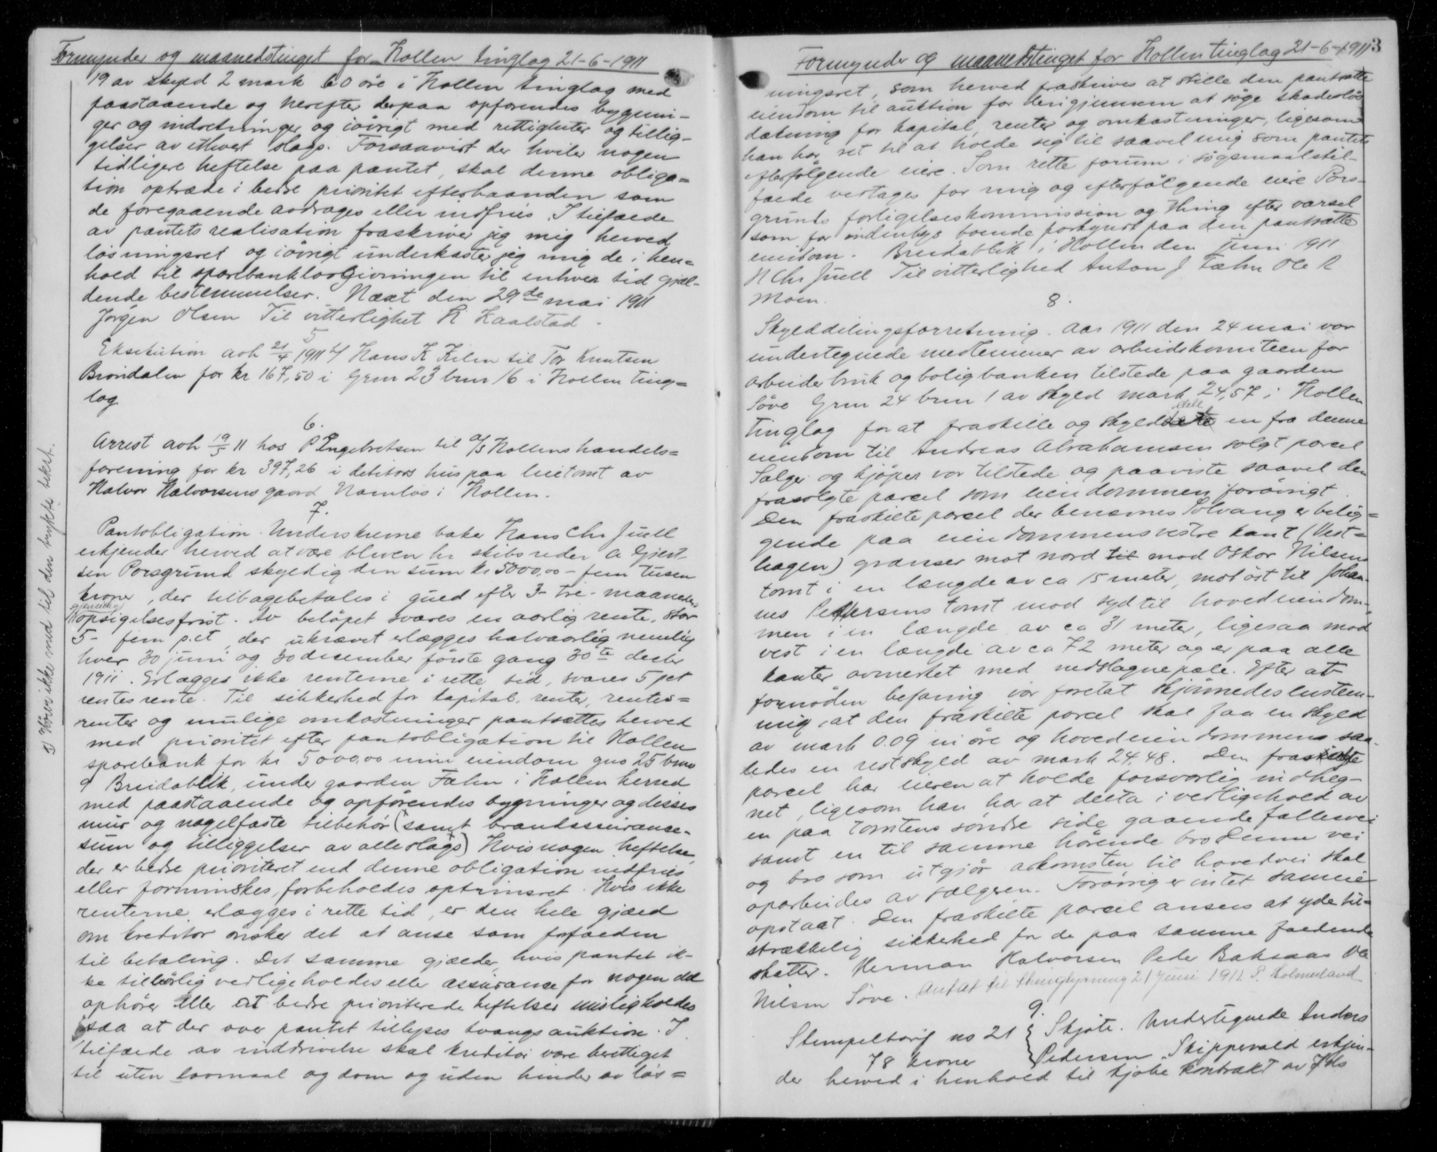 Formynder og maanedstinget for Hollen tinglag 21-6-1911
19 av skyld 2 mark 60 öre i Hollen tinglag med
paastaaende og herefter derpaa opförendes bygnin-
ger og indretninger og iövrigt med rettigheter og tillig-
gelser av ethvert slags. Forsaavidt der hviler nogen
tidligere heftelse paa pantet, skal denne obliga=
tion optræde i bedre prioritet efterhaanden som
de foregaaende avdrages eller indfries. I tilfælde
av pantets realisation fraskriver jeg mig herved
lösningsret og iövrigt underkaster jeg mig de i hen=
hold til sparebanklovgivningen til enhver tid gjæl-
dende bestemmelser. Næst den 29de mai 1911
Jörgen Olsen Til vitterlighet H Haalstad.
5
Eksekution avh 21/4 1911 hos Hans K Kilen til Tor Knutsen
Brøndalen for kr 167,50 i Grm 23 brm 16 i Hollen ting=
lag
6.
Arrest avh 19/5 11 hos P Engebretsen til A/S Hollens handels=
forening for kr 397,26 i debitors hus paa leietomt av
Halvor Halvorsens gaard Namlös i Hollen.
7.
Pantobligation. Underskrevne baker Hans Chr Juell
erkjender herved at være bleven hr skibsreder A Gjest
sen Porsgrund skyldig den sum kr 5000,00 - fem tusen
kroner, der tilbagebetales i gued efter 3- tre - maaneders
gjensidig
opsigelsesfrist. Av belöpet svares en aarlig rente, stor
5 - fem pct der ukrævet erlægges halvaarlig nemlig
hver 30 juni og 30 december förste gang 30te decbr
1911. Erlægges ikke renterne i rette tid, svares 5 pct
rentes rente. Til sikkerhed for kapital, renter, rentes=
renter og mulige omkostninger pantsættes herved
med prioritet efter pantobligation til Hollen
sparebank for kr 5000,00 min eiendom gno 25 brno
9 Breidablik, under gaarden Fahn i Hollen herred
med paastaaende og opförendes bygninger og disses
mur og nagelfaste tilbehör (samt brandassurance-
sum og tilliggelser av alle slags) Hvis nogen heftelse,
der er bedre prioriteret end denne obligation indfries
eller formindskes, forbeholdes optrinsret. Hvis ikke
renterne erlægges i rette tid, er den hele gjæld
om kreditor önsker det at anse som forfalden
til betaling. Det samme gjælder hvis pantet ik-
ke tilbörlig vedligeholdes eller assurance for nogen del
ophörer eller at bedre prioriterede heftelser misligholdes
saa at der over pantet tillyses tvangsauktion. I
tilfælde av inddrivelse skal kreditor være berettiget
til uten lovmaal og dom og uden hinder av lös=
8) Hörer ikke med til den trykte tekst.
Formynder og maanedstinget for Hollen tinglag 21-6-1911 3
ningsret, som herved fraskrives at stille den pantsatte
eiendom til auktion for derigjennem at söge skadeslös
dækning for kapital, renter og omkostninger, ligesom
han har ret til at holde sig til saavel mig som pantets
efterfölgende eiere. Som rette forum i sögsmaalstil-
fælde vedtages for mig og efterfölgende eiere Pors-
grunds forligelseskommission og thing efter varsel
som for indenbys boende forkyndt paa den pantsatte
eiendom. Breidablik i Hollen den juni 1911
H Chr Juell Til vitterlighed Anton J Fahn Ole R
Moen.
8.
Skylddelingsforretning. Aar 1911 den 24 mai var
undertegnede medlemmer av arbeidskomiteen for
arbeiderbruk og boligbanken tilstede paa gaarden
Söve Grm 24 brm 1 av skyld mark 24,57 i Hollen
tinglag for at fraskille og skylddele en fra denne
eiendom til Andreas Abrahamsen solgt parcel
Sælger og kjöper var tilstede og paaviste saavel den
frasolgte parcel som eiendommen forövrigt.
Den fraskilte parcel der benævnes Solvang er belig=
gende paa eiendommens vestre kant (Vest-
hagen) grænser mot nord til mod Oskar Nilsens
tomt i en længde av ca 15 meter, mot öst til Johan
nes Pettersens tomt mod syd til hovedeiendom-
men i en længde av ca 31 meter, ligesaa mod
vest i en længde av ca 72 meter og er paa alle
kanter avmerket med nedslagne pæle. Efter at
fornöden befaring var foretat skjönnedes enstem-
mig, at den fraskilte parcel skal faa en skyld
av mark 0.09 ni öre og hovedeiendommens saa-
ledes en restskyld av mark 24.48. Den fraskilte
parcel har eieren at holde forsvarlig indheg-
net, ligesom han har at delta i vedligehold av
en paa tomtens söndre side gaaende fællesvei
samt en til samme hörende bro Denne vei
og bro som utgjör adkomsten til hovedvei skal
oparbeides av sælgeren. Forövrig er intet sameie
opstaat. Den fraskilte parcel ansees at yde til=
strækkelig sikkerhed for de paa samme faldende
skatter. Herman Halvorsen Peder Baksaas Ole
Nilsen Söve. Antat til thinglysning 21 juni 1911 P. Holmesland
9.
Stempeltarif no 21
78 kroner
Skjöte. Undertegnede Anders
Pedersen Skippervold erkjen-
der herved i henhold til kjöbekontrakt av